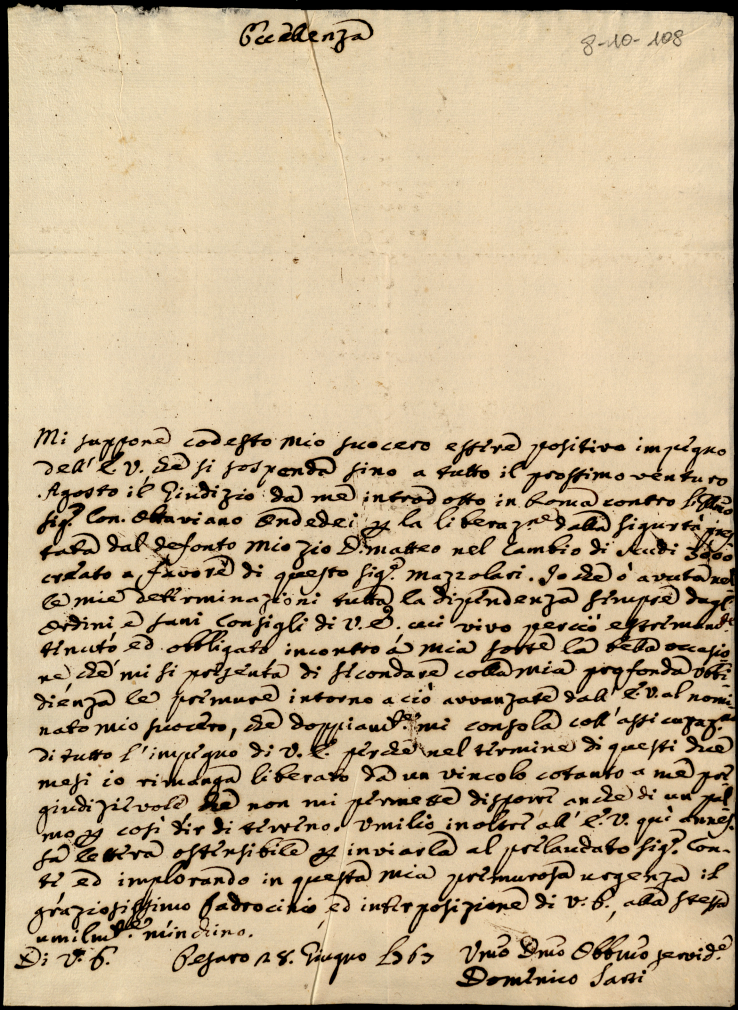 Eccellenza
8-10-108
Mi suppone codesto mio suocero essere positivo impegno
dell' E. V. che si sospenda sino a tutto il prossimo venturo
Agosto il Giudizio da me introdotto in Roma contro
Sig.r Con. Ottaviano Ondedei p la liberaz.ne dalla sigurtà
tata dal defonto mio zio D. Matteo nel Cambio di scudi 3000
creato a favore di questo Sig.r Mazzolari. Io che ò avuta nel
le mie determinazioni tutta la dipendenza sempre dagl'
Ordini e savi Consigli di V. E. cui vivo perciò estremam.te
tenuto ed obbligato incontro à mia sorte la bella occasio
ne che mi si presenta di secondare colla mia profonda obbe
dienza le premure intorno a ciò avvanzate dall' E. V. al nomi
nato mio suocero, che doppiam.te mi consola coll' assicuraz.ne
di tutto l'impegno di V. E. perchè nel termine di questi due
mesi io rimanga liberato da un vincolo cotanto a me pre
giudizievole che non mi permette disporre anche di un pal
mo p così dir di terreno. Umilio inoltre all' E. V. quì annes
sa lettera ostensibile p inviarla al prelaudato Sig.r Con-
te ed implorando in questa mia premurosa urgenza il
graziosissimo Padrocinio ed interposizione di V. E., alla stessa
umilm.te m'inchino.
Di V. E. Pesaro 28. Giugno 1763 Umo Dmo Obbmo servid.e
Domenico Sarti